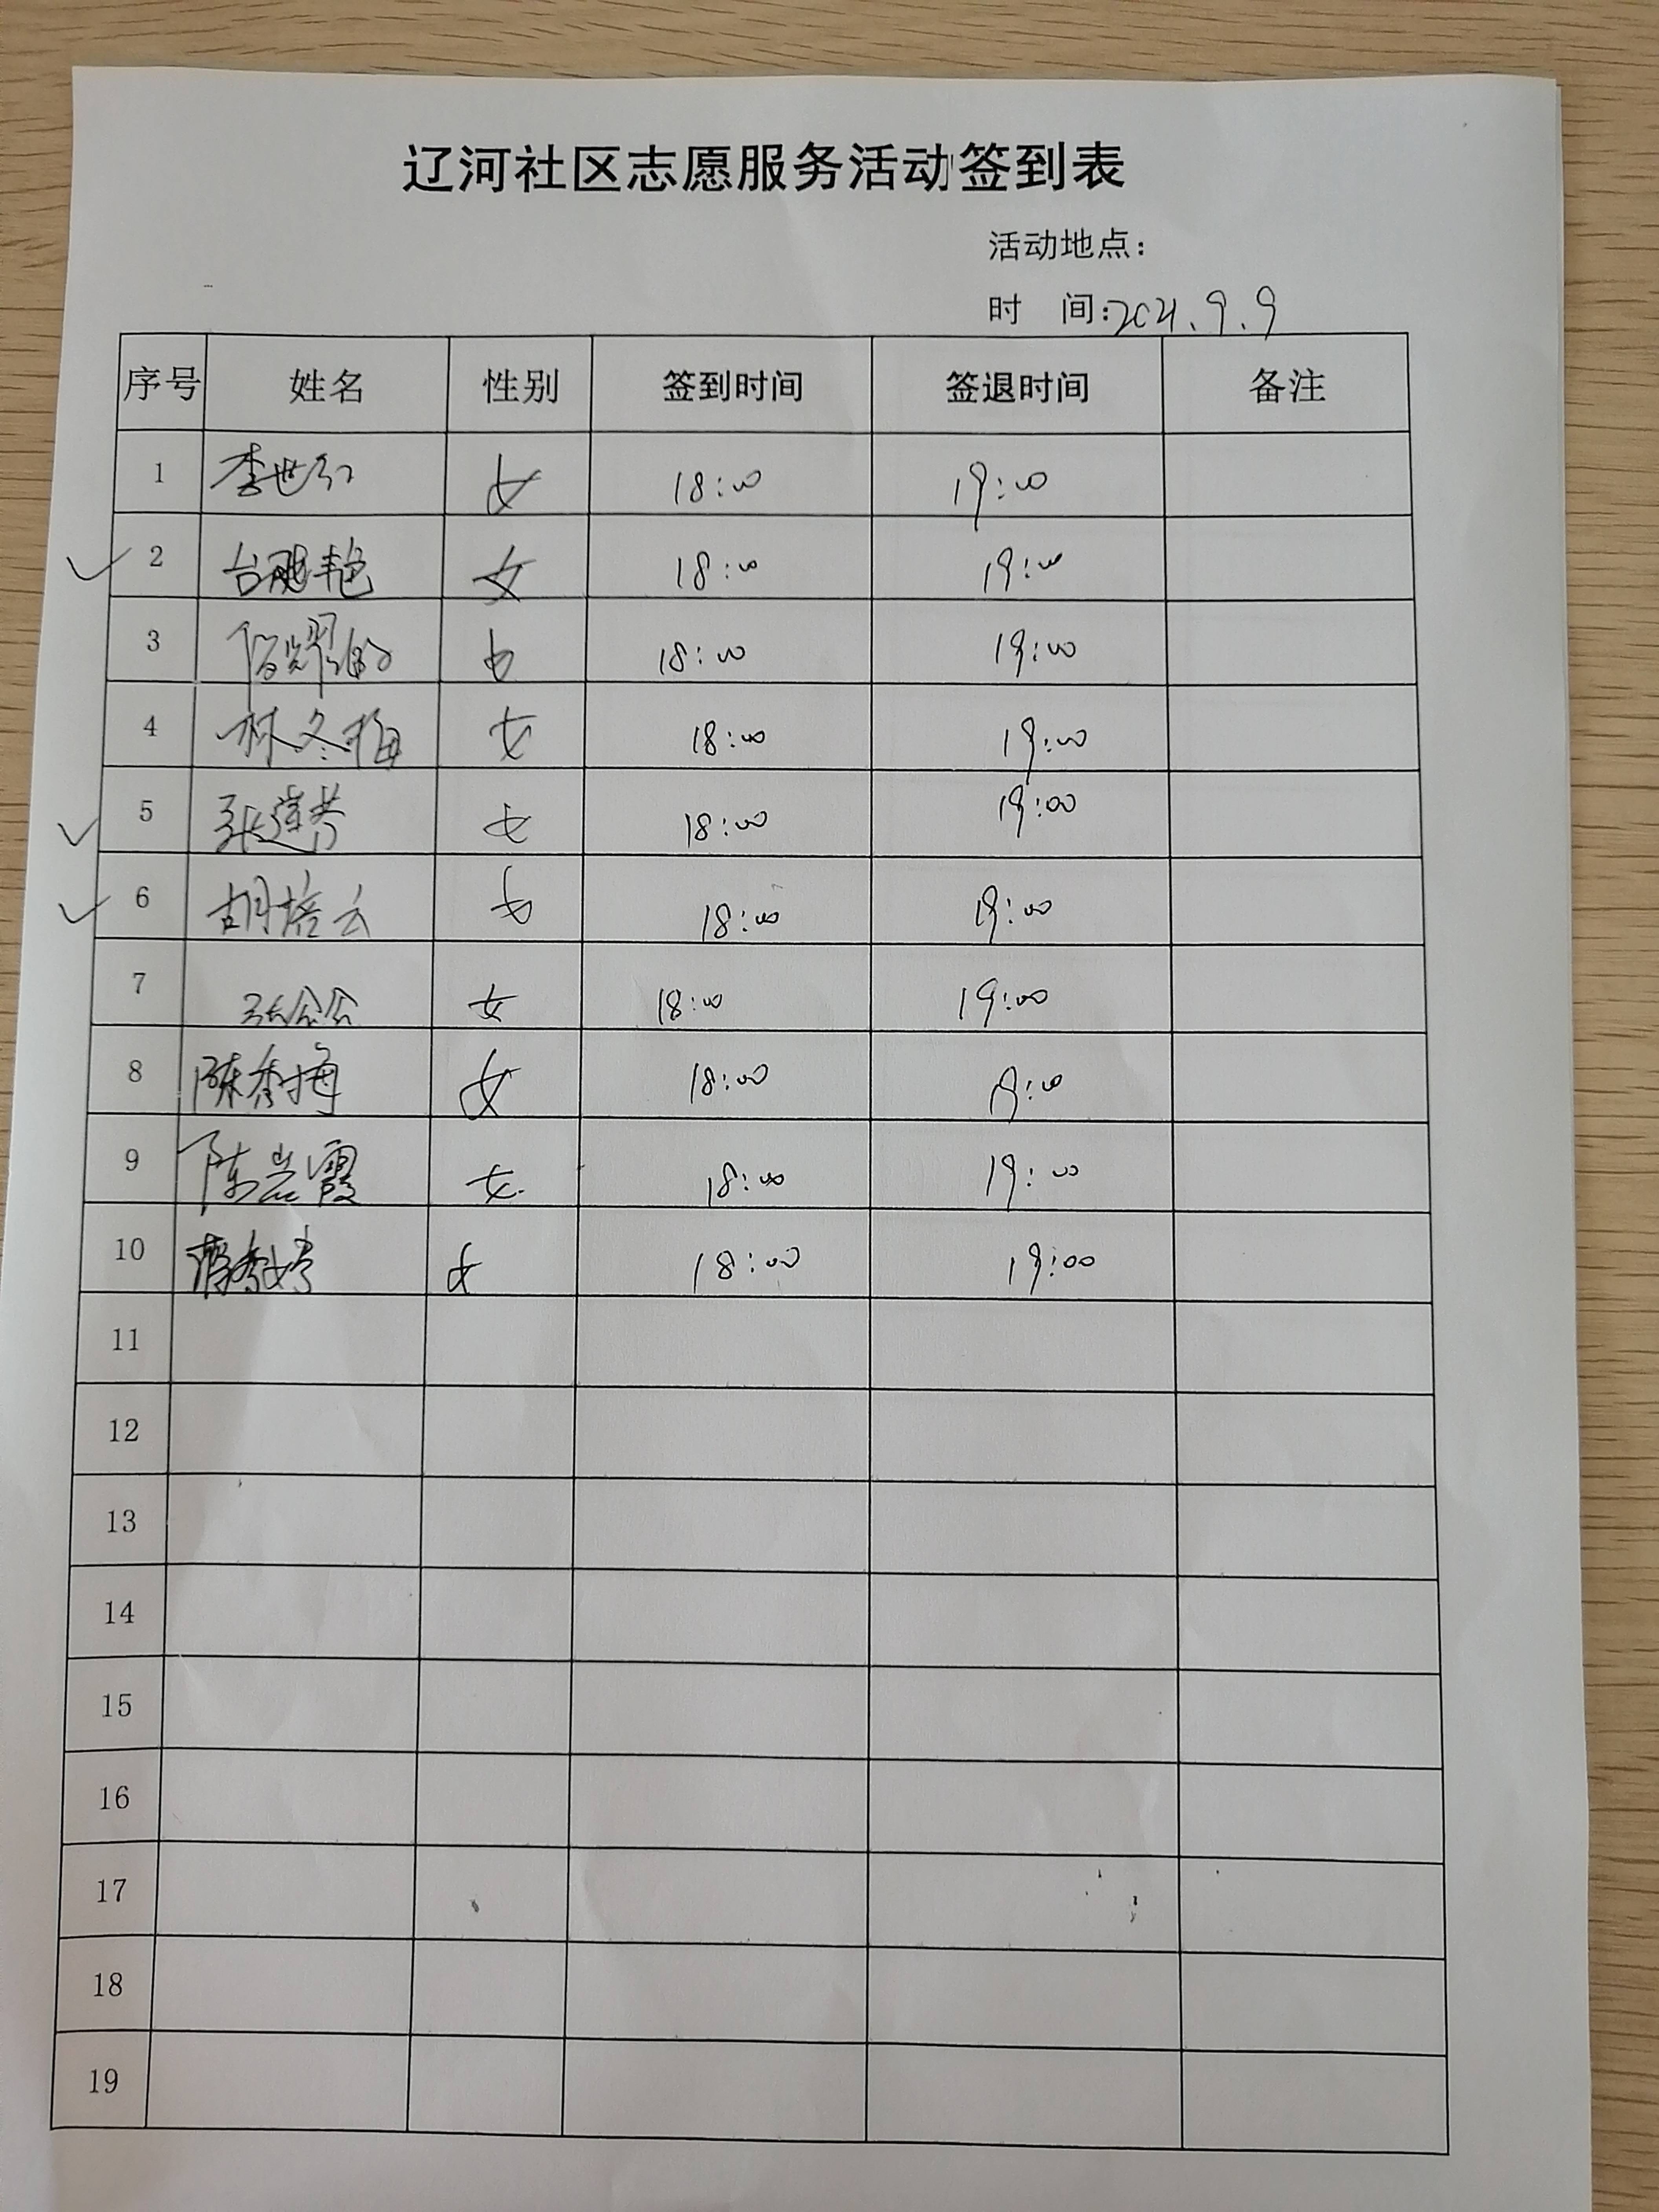 辽河社区志愿服务活动签到表
活动地点：
时 间：2021.9.9
序号 姓名 性别 签到时间 签退时间 备注
1 李世红 女 18:00 19:00
2 女 18:00 19:00
3 女 18:00 19:00
4 林冬梅 女 18:00 19:00
5 张莲芳 女 18:00 19:00
6 胡培云 女 18:00 19:00
7 女 18:00 19:00
8 陈秀梅 女 18:00 19:00
9 女 18:00 19:00
10 女 18:00 19:00
11
12
13
14
15
16
17
18
19